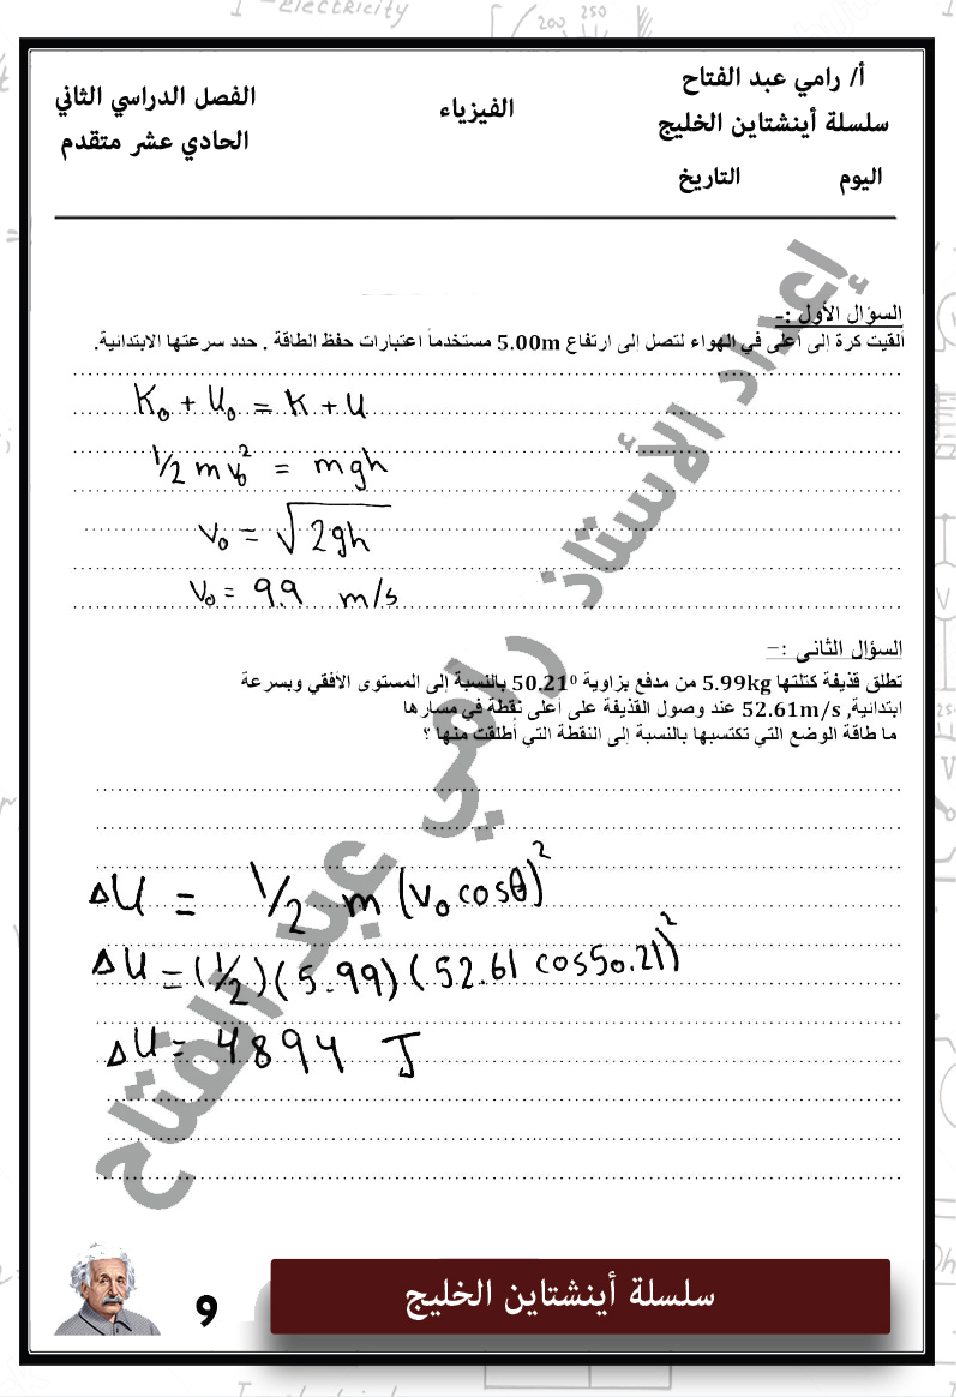 أ/ رامي عبد الفتاح
سلسلة أينشتاين الخليج
اليوم التاريخ
الفيزياء
الفصل الدراسي الثاني
الحادي عشر متقدم
السؤال الأول :-
ألقيت كرة إلى أعلى في الهواء لتصل إلى ارتفاع 5.00m مستخدماً اعتبارات حفظ الطاقة . حدد سرعتها الابتدائية.
K₀ + U₀ = K + U
1/2 m v₀² = mgh
v₀ = √2gh
v₀ = 9.9 m/s
السؤال الثانى :-
تطلق قذيفة كتلتها 5.99kg من مدفع بزاوية 50.21⁰ بالنسبة إلى المستوى الأفقي وبسرعة
ابتدائية, 52.61m/s عند وصول القذيفة على أعلى نقطة في مسارها
ما طاقة الوضع التي تكتسبها بالنسبة إلى النقطة التي أطلقت منها ؟
ΔU = 1/2 m (v₀ cosθ)²
ΔU = (1/2)(5.99)(52.61 cos50.21)²
ΔU = 4894 J
إعداد الأستاذ رامي عبد الفتاح
سلسلة أينشتاين الخليج
9